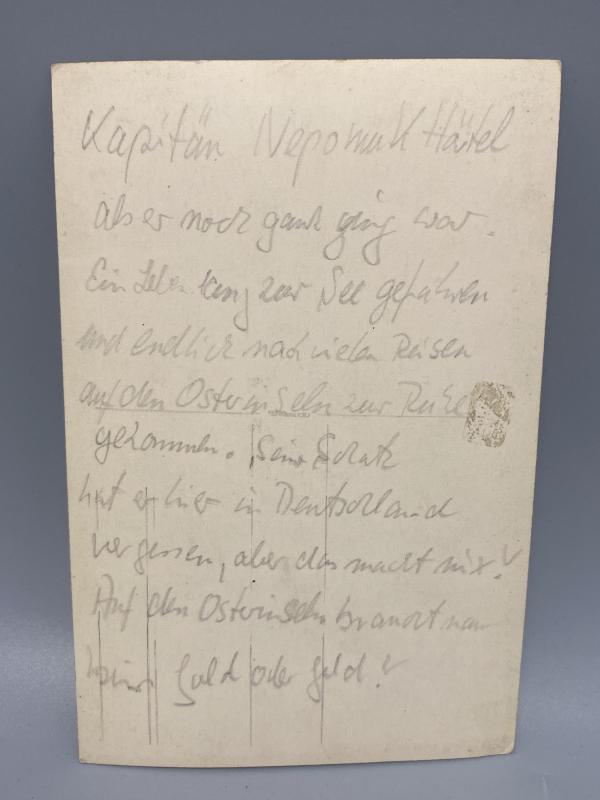 Kapitän Nepomuk Härtel
als er noch ganz jung war.
Ein Leben lang zur See gefahren
und endlich nach vielen Reisen
auf den Osterinseln zur Ruhe
gekommen. Sein Schatz
hat er hier in Deutschland
vergessen, aber das macht nix!
Auf den Osterinseln braucht man
kein Gold oder Geld!